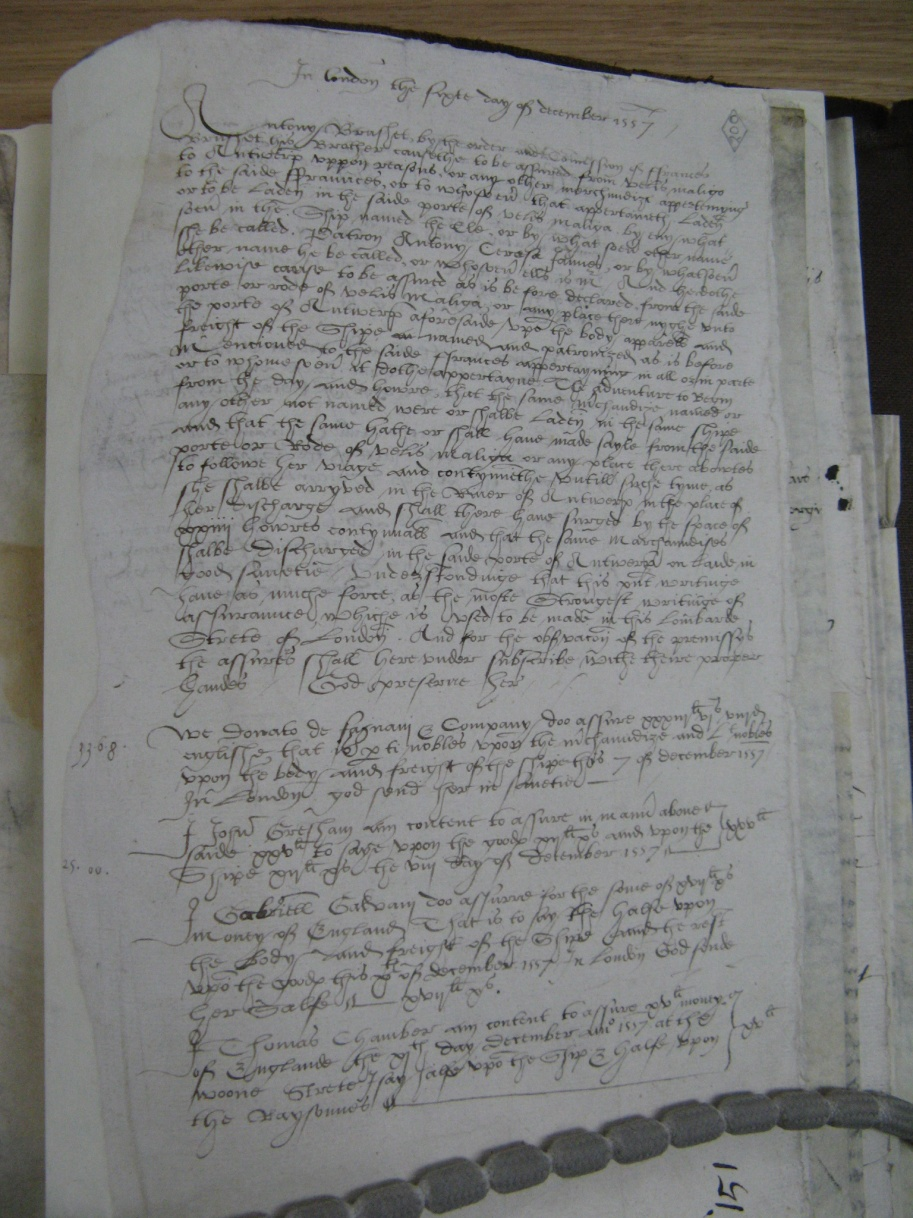 In London the syxte day of december 1557
Antony Brushet by the order and Comission of ffrances
Brusset his Brother causethe to be assured from velis maliga
to Antwerp uppon reasons, or any other merchandize appertening
to the saide ffraunces, or to whosoevr that appertaineth Laden
or to be Laden in the saide porte of velis maliga by eny what
soevr in the Ship named the Ele, or by what soevr other name
she be called. Patron Antony Cerasa or by whatsoevr
other name he be called, or whosoevr ells is mr And he dothe
likewise cause to be assured as is before declared from the saide
porte or rode of velis Maliga, or any place there nyghe unto
the porte of Antwerp aforesaide upo the body apparell and
freight of the Shipe named and patronized as is before
Mentioned to the saide ffrances appertayning in all or in parte
or to whome soevr it dothe appertayne The adventure to Begin
from the day and howre that the same mchandize named or
any other not named were or shalbe Laden in the same shipe
and that the same hathe or shall have made sayle from the saide
porte or Rode of velis maliga or any place there abowtes
to followe her viage and contynuethe untill suche tyme as
she shalbe arryved in the River of Antwerp in the place of
her discharge and shall there have surged by the space of
xxiiii howres contynuall and that the same marchandises
shalbe Discharged in the saide porte of Antwerp on Lande in
good savetie Understondinge that this pnt writinge
have as muche force as the moste Strongest writinge of
assuraunce whiche is used to be made in this Lombarde
Strete of London. And for the obsvacon of the premisses
the assures shall here under subscribe withe theire proper
handes God preserve her
We Donato de & Company doo assure xxxiii li vi s viii d
33-6-8.
englishe that is nobles upon the mchandize and L nobles
upon the body and freight of the shipe this 7 of december 1557
In London god send her in savetie
I John Gresham am content to assure in manr above
saide xxv li to saye upon the goods xii li x s and upon the xxv li
25. 00.
Shipe xii li x s the viii day of December 1557
I Gabriell Galvani doo assure for the some of xvii li x s
Money of England That is to say the halfe upon
the Body and freight of the Ship and the rest
upo the goods this of december 1557 in London God sende
her Salfe xvii li x s.
I Thomas Chamber am content to assure xv li money
of Englande the xi th day december ano 1557 at the xv li
Strete I say upo the Ship & halfe upon
the Raysonnes